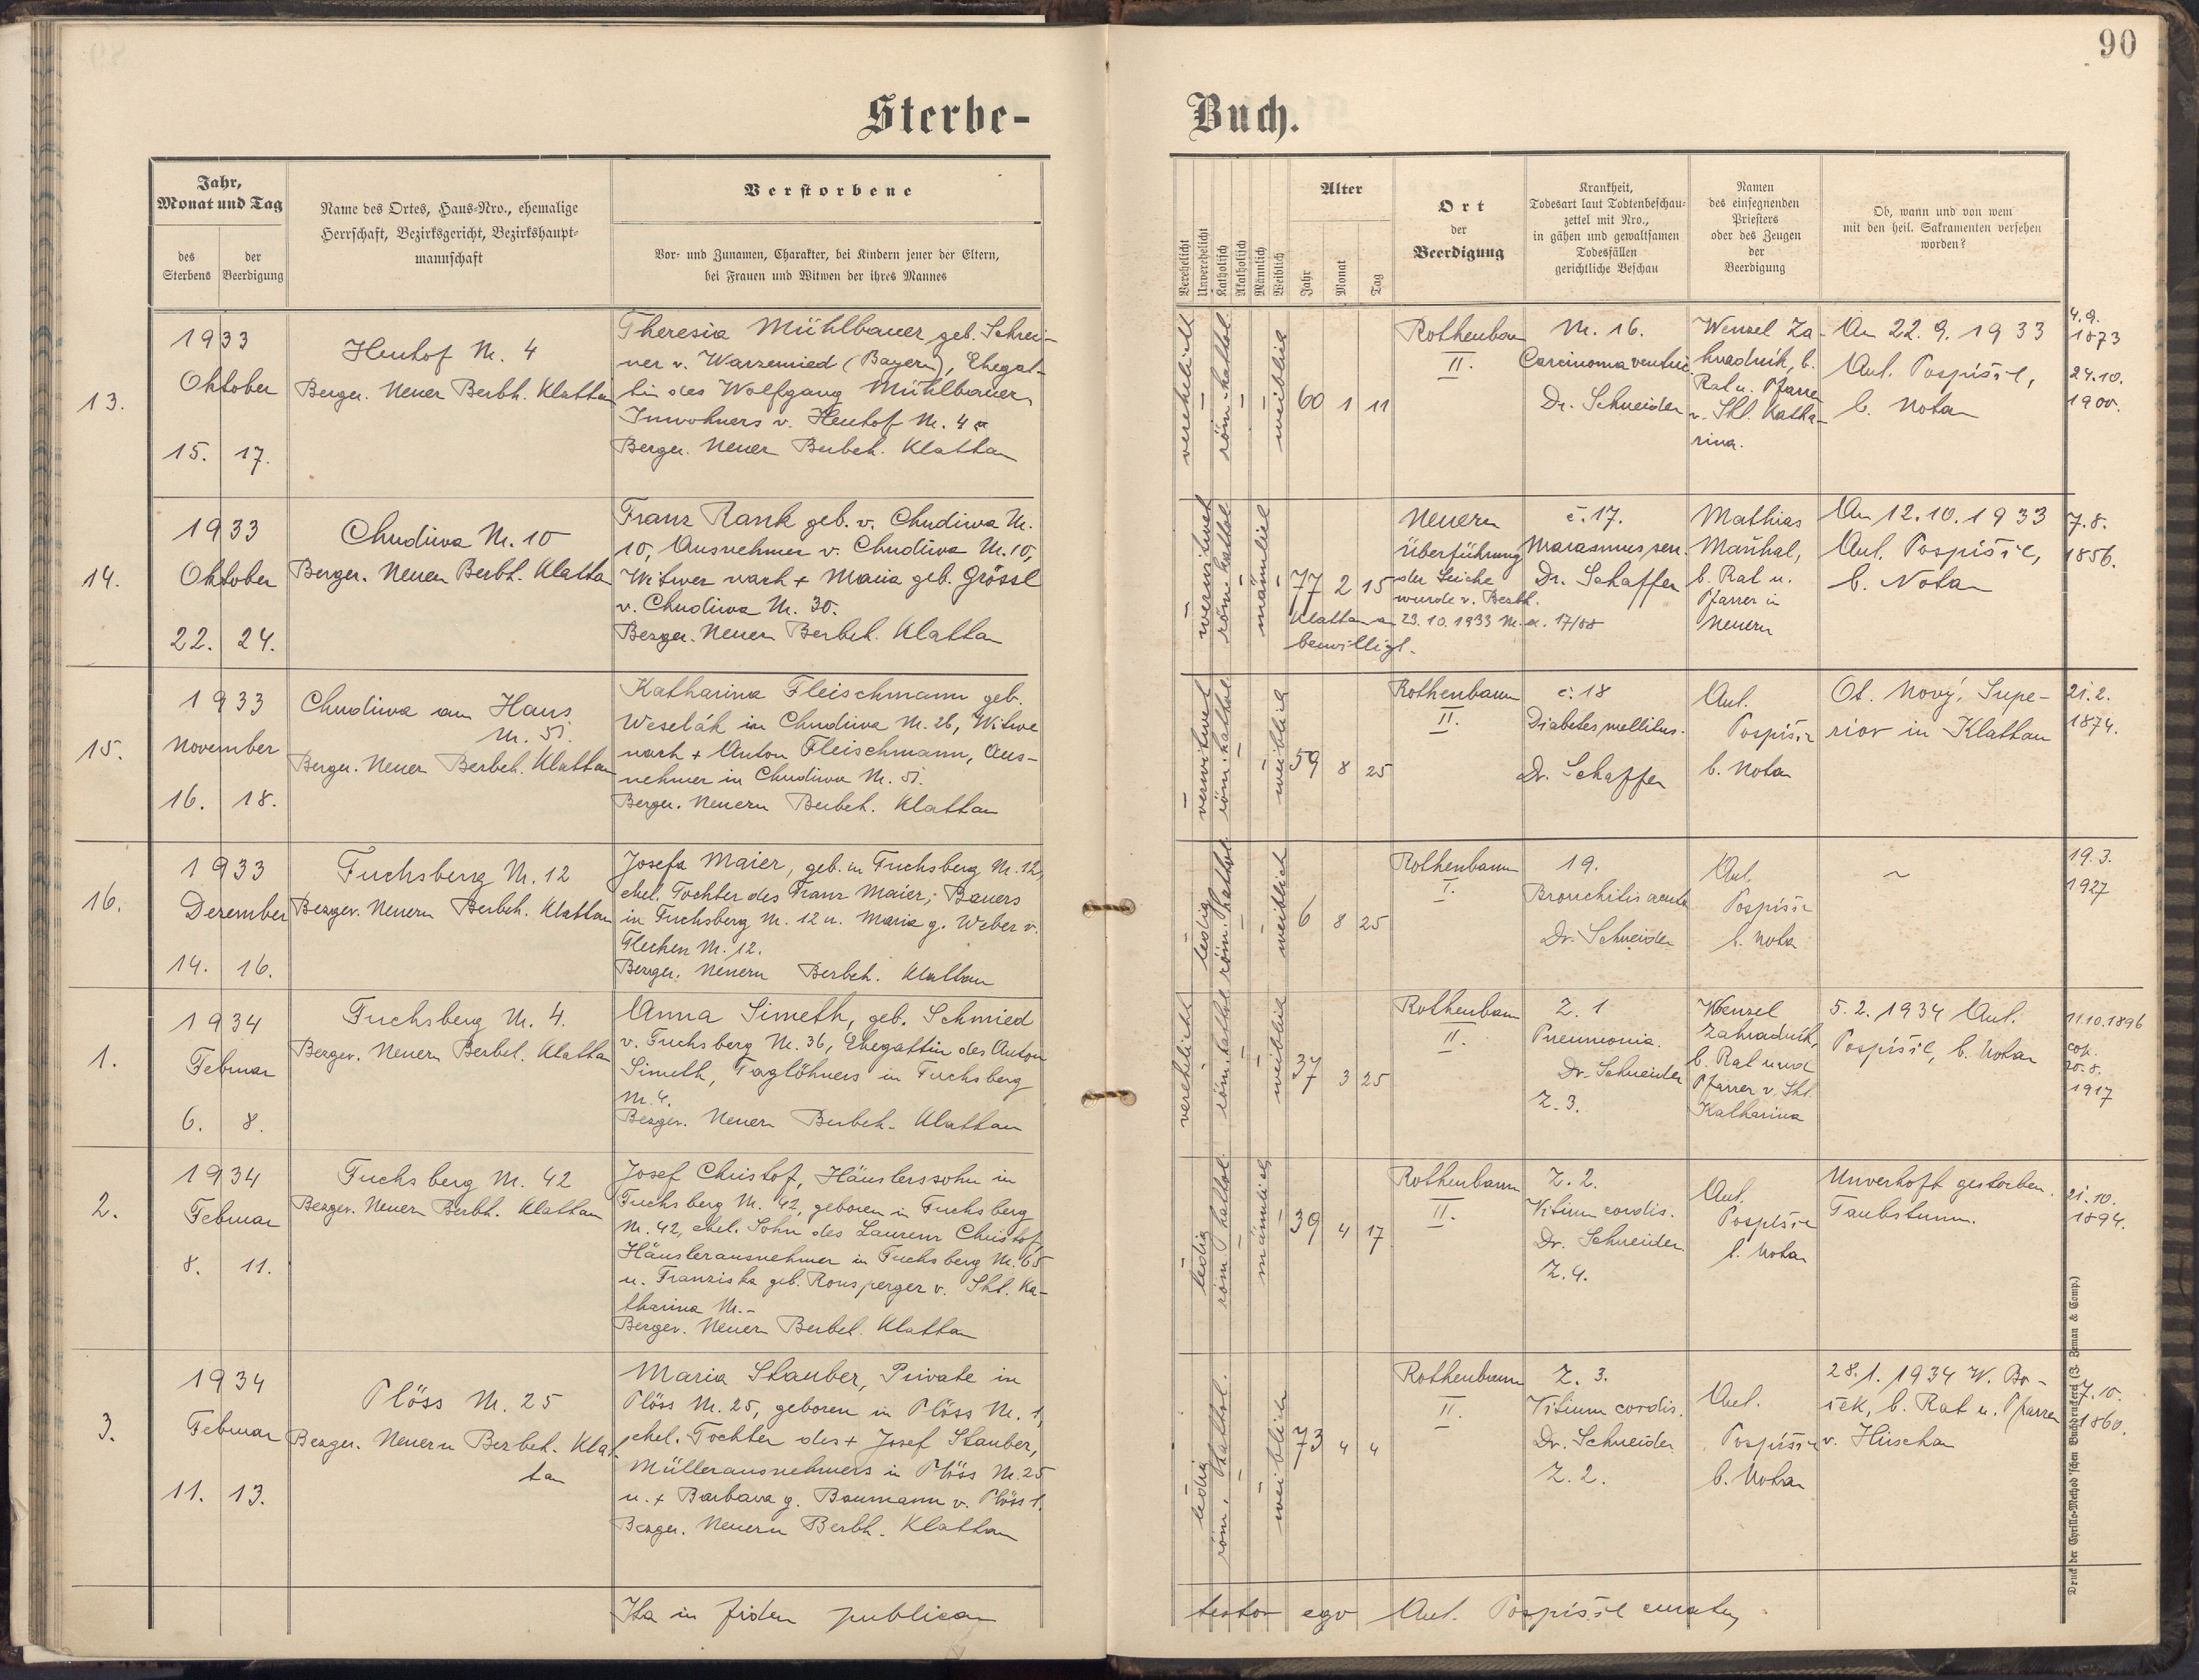 90
Sterbe-
Buch.
Jahr,
Monat und Tag
des
Sterbens
der
Beerdigung
Name des Ortes, Haus-Nro., ehemalige
Herrschaft, Bezirksgericht, Bezirkshaupt-
mannschaft
Verstorbene
Vor- und Zunamen, Charakter, bei Kindern jener der Eltern,
bei Frauen und Witwen der ihres Mannes
Verehelicht
Unverehelicht
Katholisch
Akatholisch
Männlich
Weiblich
Alter
Jahr
Monat
Tag
Ort
der
Beerdigung
Krankheit,
Todesart laut Todtenbeschau-
zettel mit Nro.,
in gähen und gewaltsamen
Todesfällen
gerichtliche Beschau
Namen
des einsegnenden
Priesters
oder des Zeugen
der
Beerdigung
Ob, wann und von wem
mit den heil. Sakramenten versehen
worden?
13.
1933
Oktober
15. 17.
Heuhof N. 4
Bezger. Neuern Bezbh. Klattau
Theresia Mühlbauer geb. Schrei-
ner v. Warzenried (Bayern), Ehegat-
tin des Wolfgang Mühlbauer,
Inwohners v. Heuhof N. 4
Bezger. Neuern Bezbeh. Klattau
verehelicht
röm.-kathol.
weiblich
60 1 11
Rothenbaum
II.
N. 16.
Carcinoma ventric.
Dr. Schneider
Wenzel Za-
hradnik, b.
Rat u. Pfarrer
v. Skt. Katha-
rina.
Am 22. 9. 1933
Ant. Pospíšil,
b. Notar
4.9.
1873
24.10.
1900.
14.
1933
Oktober
22. 24.
Chudiwa N. 10
Bezger. Neuern Bezbh. Klattau
Franz Rank geb. v. Chudiwa N.
10, Ausnehmer v. Chudiwa N. 10,
Witwer nach + Maria geb. Grössl
v. Chudiwa N. 30.
Bezger. Neuern Bezbeh. Klattau
verwitwet
röm. kathol.
männlich
77 2 15
Neuern
Überführung
der Leiche
wurde v. Bezbh.
Klattau 23. 10. 1933 N. 17/88
bewilligt.
č. 17.
Marasmus sen.
Dr. Schaffer
Mathias
Maršal,
b. Rat u.
Pfarrer in
Neuern
Am 12. 10. 1933
Ant. Pospíšil,
b. Notar
7.8.
1856.
15.
1933
November
16. 18.
Chudiwa am Haus
N. 51.
Bezger. Neuern Bezbeh. Klattau
Katharina Fleischmann geb.
Weselák in Chudiwa N. 26, Witwe
nach + Anton Fleischmann, Aus-
nehmer in Chudiwa N. 51.
Bezger. Neuern Bezbeh. Klattau
verwitwet
röm. kathol.
weiblich
59 8 25
Rothenbaum
II.
č. 18
Diabetes mellitus.
Dr. Schaffer
Ant.
Pospíšil
b. Notar
Ot. Nový, Supe-
rior in Klattau
21.2.
1874.
16.
1933
Dezember
14. 16.
Fuchsberg N. 12
Bezger. Neuern Bezbeh. Klattau
Josefa Maier, geb. in Fuchsberg N. 12,
ehel. Tochter des Franz Maier, Bauers
in Fuchsberg N. 12 u. Maria g. Weber v.
Flecken N. 12.
Bezger. Neuern Bezbeh. Klattau
ledig
röm. kathol.
weiblich
6 8 25
Rothenbaum
I.
19.
Bronchitis acuta
Dr. Schneider
Ant.
Pospíšil
b. Notar
19.3.
1927
1.
1934
Februar
6. 8.
Fuchsberg N. 4.
Bezger. Neuern Bezbeh. Klattau
Anna Simeth, geb. Schmied
v. Fuchsberg N. 36, Ehegattin des Anton
Simeth, Taglöhners in Fuchsberg
N. 4.
Bezger. Neuern Bezbeh. Klattau
verehelicht
röm. kathol.
weiblich
37 3 25
Rothenbaum
II.
Z. 1
Pneumonia.
Dr. Schneider
Z. 3.
Wenzel
Zahradnik,
b. Rat und
Pfarrer v. Skt.
Katharina
5. 2. 1934 Ant.
Pospíšil, b. Notar
11.10.1896
cop.
20.8.
1917
2.
1934
Februar
8. 11.
Fuchsberg N. 42
Bezger. Neuern Bezbh. Klattau
Josef Christof, Häuslerssohn in
Fuchsberg N. 42, geboren in Fuchsberg
N. 42, ehel. Sohn des Laurenz Christof
Häuslerausnehmer in Fuchsberg N. 65
u. Franziska geb. Ronsperger v. Skt. Ka-
tharina N. -
Bezger. Neuern Bezbeh. Klattau
ledig
röm. kathol.
männlich
39 4 17
Rothenbaum
II.
Z. 2.
Vitium cordis.
Dr. Schneider.
Z. 4.
Ant.
Pospíšil
b. Notar
Unverhofft gestorben.
Taubstumm.
21.10.
1894.
3.
1934
Februar
11. 13.
Plöss N. 25
Bezger. Neuern Bezbeh. Klat-
tau
Maria Stauber, Private in
Plöss N. 25, geboren in Plöss N. 1,
ehel. Tochter des + Josef Stauber,
Müllerausnehmers in Plöss N. 25
u. + Barbara g. Baumann v. Plöss 1.
Bezger. Neuern Bezbh. Klattau
ledig
röm. kathol.
weiblich
73 4 4
Rothenbaum
II.
Z. 3.
Vitium cordis.
Dr. Schneider
Z. 2.
Ant.
Pospíšil
b. Notar
28. 1. 1934 W. Bo-
šek, b. Rat u. Pfarrer
v. Hirschau
7.10.
1860.
Ita in fidem publicam
testor ego Ant. Pospíšil curatus
Druck der Cyrillo-Method'schen Buchdruckerei (J. Zeman & Comp.)